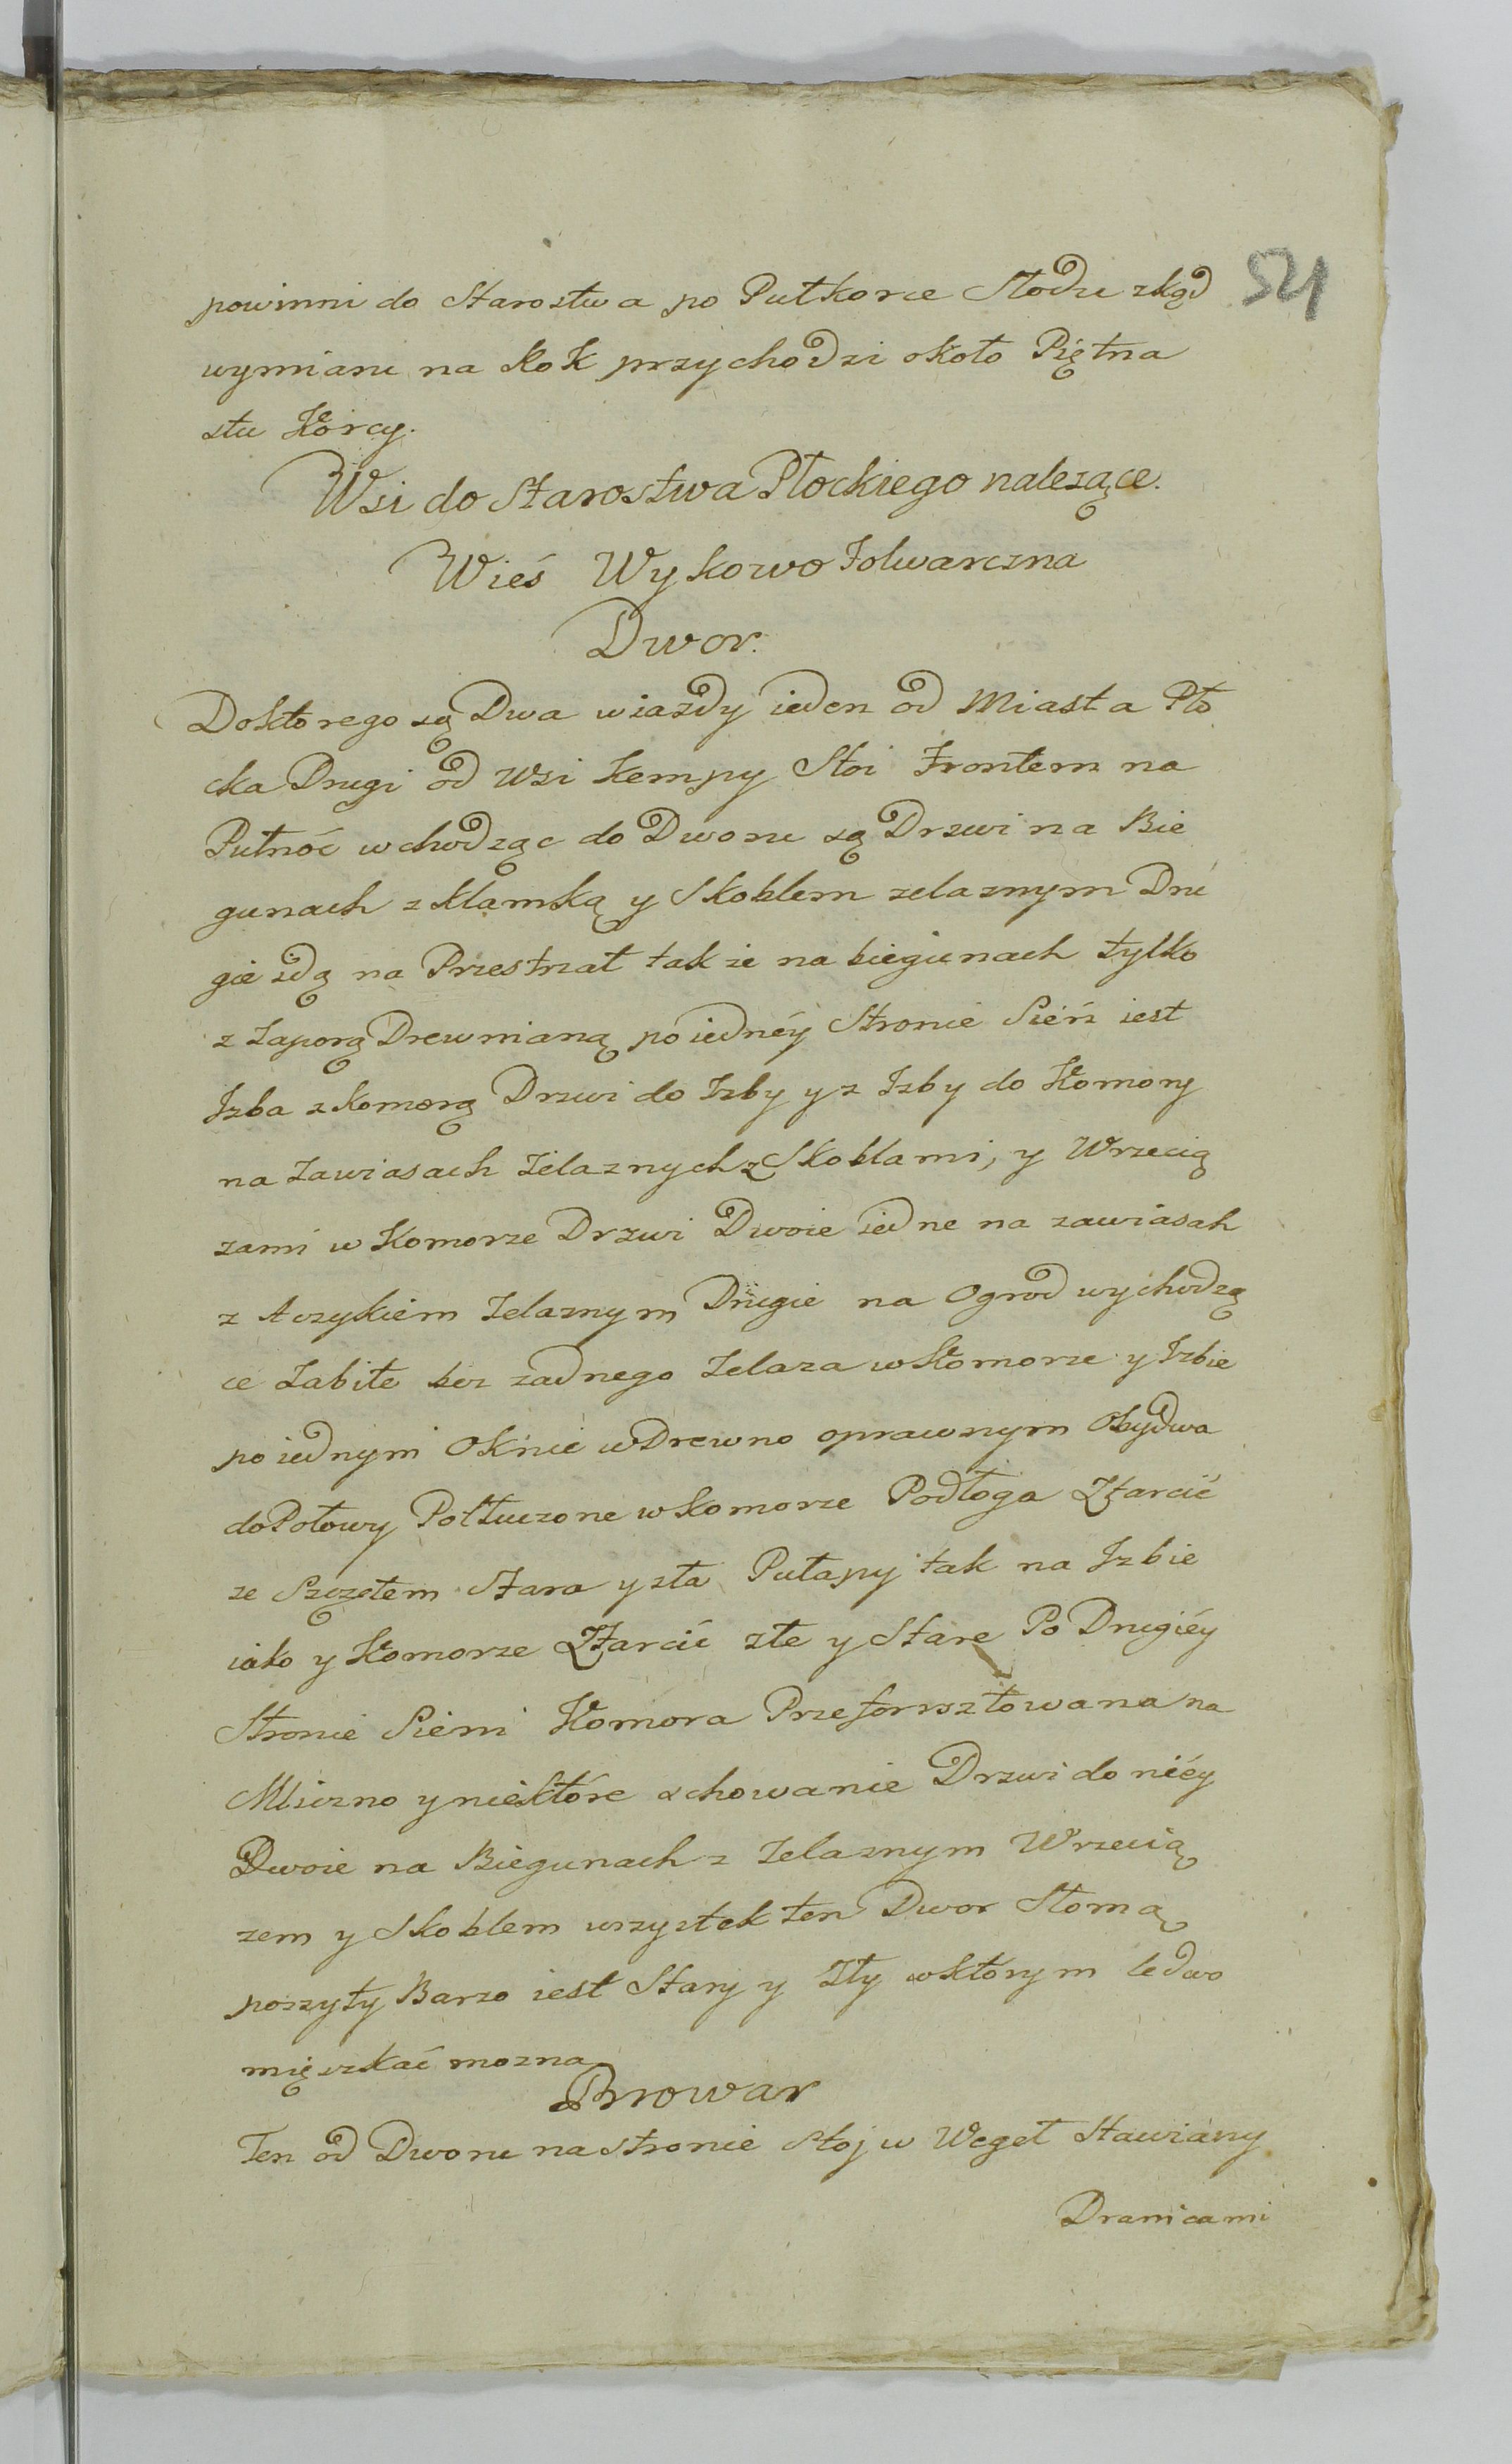 521
powinni do Starostwa po Putkorce Słodu zkąd
wymiaru na Rok przychodzi około Piętna
stu Korcy.
Wsi do Starostwa Płockiego nalezące.
Wieś Wykowo Folwarczna
Dwor.
Doktorego są Dwa wiazdy ieden od Miasta Pło
cka Drugi od Wsi Kempy Stoi Frontem na
Putnóć wchodząc do Dworu są Drzwi na Bie
gunach z Klamką y Skoblem zelaznym Dru
gie idą na Przestrzał takze na biegunach tylko
z Zaporą Drewnianą po iednéy Stronie Sień iest
Izba z Komorą Drzwi do Izby y z Izby do Komory
na Zawiasach Zelaznych z Skoblami, y Wrzecią
zami w Komorze Drzwi Dwoie iedne na zawiasah
z Aczykiem Zelaznym Drugie na Ogrod wychodzą
ce Zabite bez zadnego Zelaza w Komorze y Izbie
po iednym Oknie w Drewno oprawnym Obydwa
do Połowy Potłuczone w Komorze Podłoga z Tarcić
ze Szczętem Stara y zła Pułapy tak na Izbie
iako y Komorze z Tarcić złe y Stare Po Drugiéy
Stronie Sieni Komora Przeforsztowana na
Mliczno y niektóre zchowanie Drzwi do niéy
Dwoie na Biegunach z Zelaznym Wrzecią
zem y Skoblem wszystek ten Dwor Słomą
poszyty Barzo iest Stary y Zły w którym ledwo
mięszkać mozna
Browar
Ten od Dworu na stronie stoj w Węgeł Stawiany
Dranicami